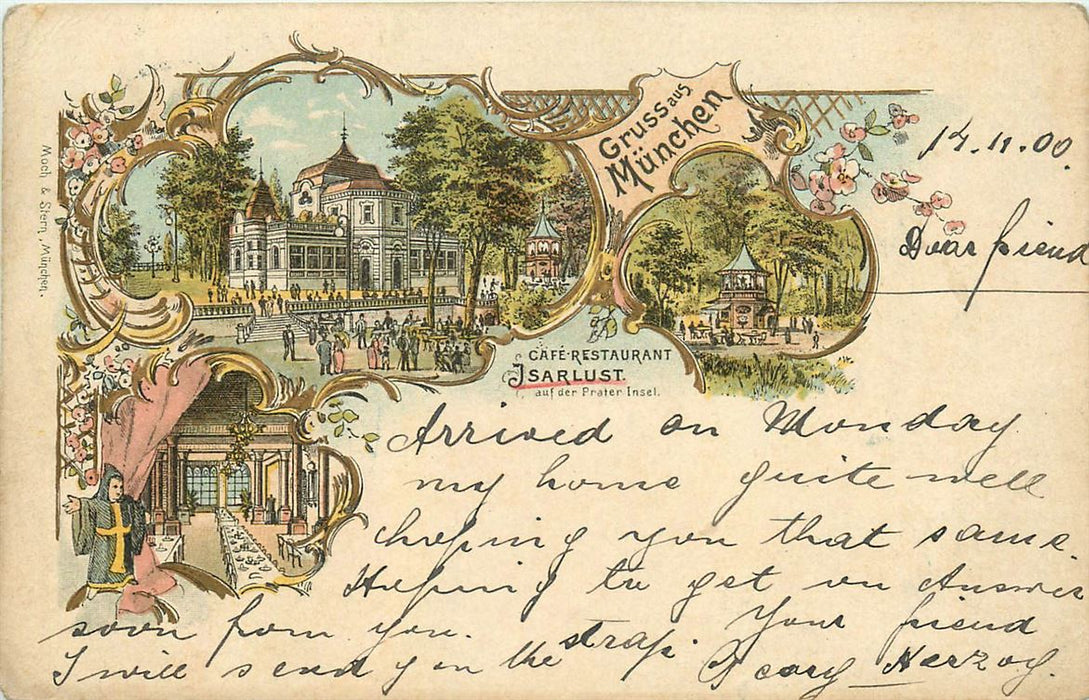 Gruss aus
München
Moch & Stern, München.
CAFÉ-RESTAURANT
ISARLUST.
auf der Prater Insel.
14.11.00.
Dear friend
Arrived on Monday
my home quite well
hoping you that same.
Hoping to get an Answer
soon from you. Your friend
I will send you the strap. Georg Herzog.